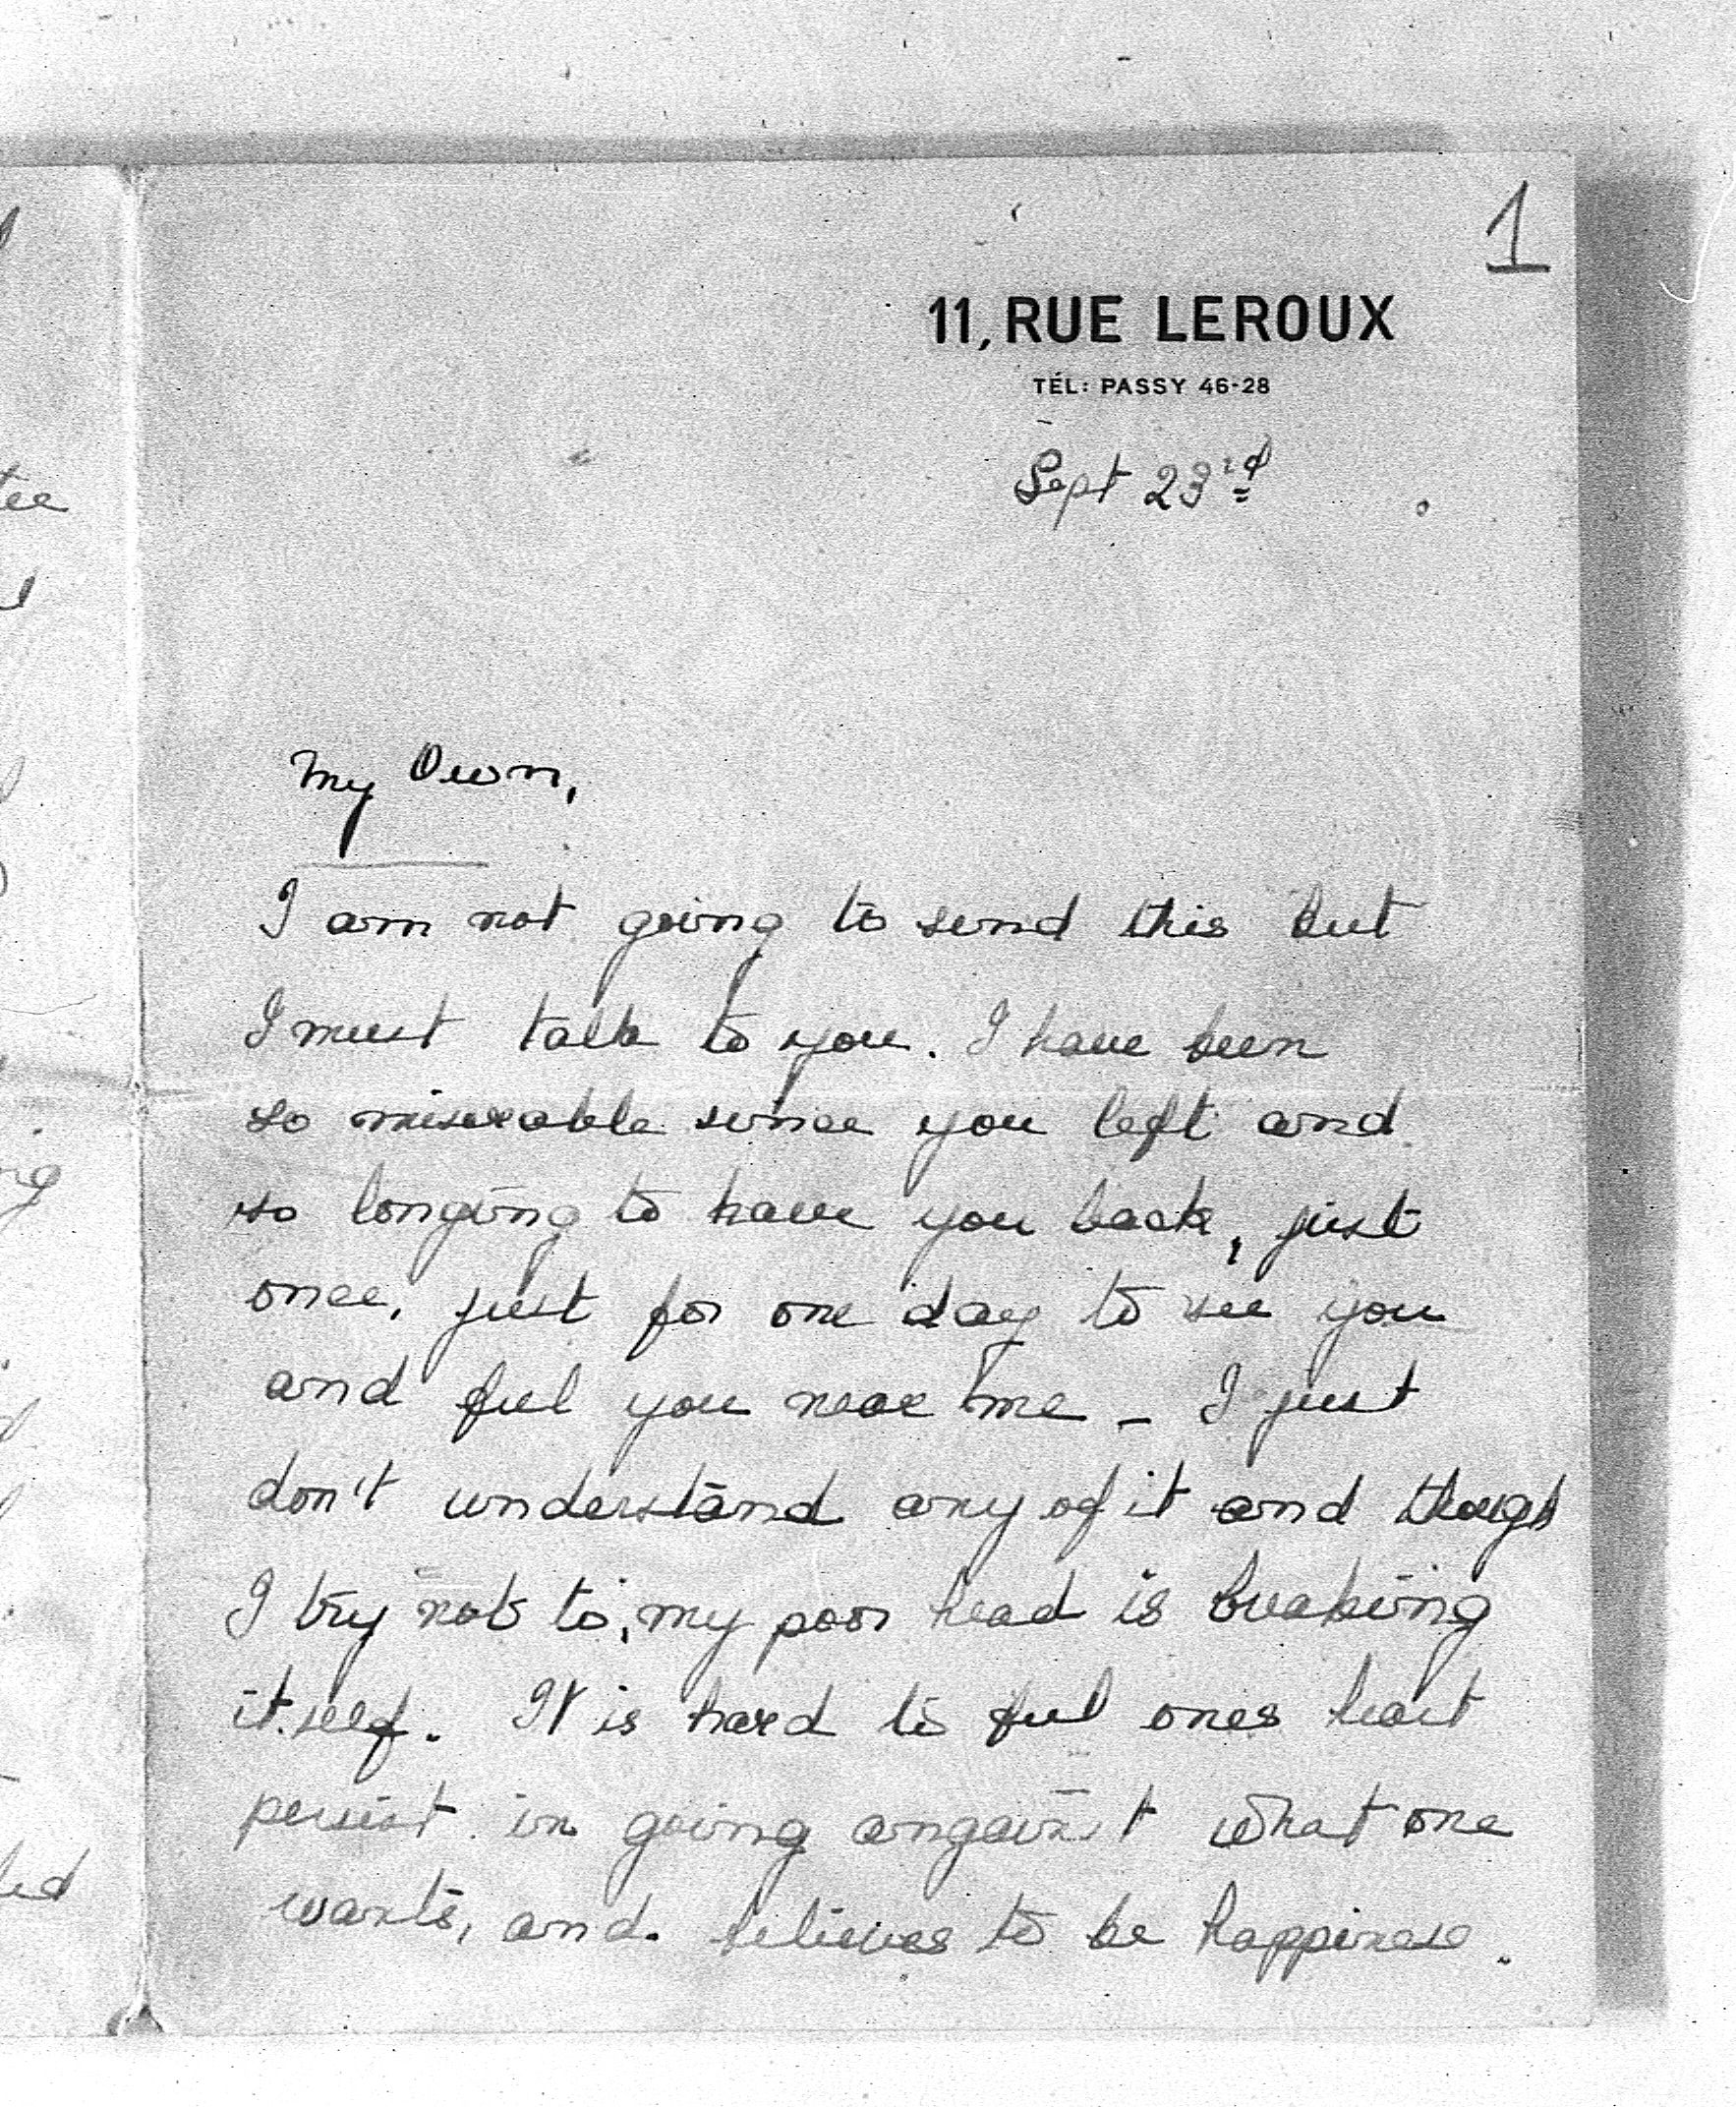 1
11, RUE LEROUX
TÉL: PASSY 46-28
Sept 23rd
My Own,
I am not going to send this but
I must talk to you. I have been
so miserable since you left and
so longing to have you back, just
once, just for one day to see you
and feel you near me - I just
don't understand any of it and though
I try not to, my poor head is breaking
itself. It is hard to feel ones heart
persist in going angainst what one
wants, and believes to be happiness.
tee
ng
led